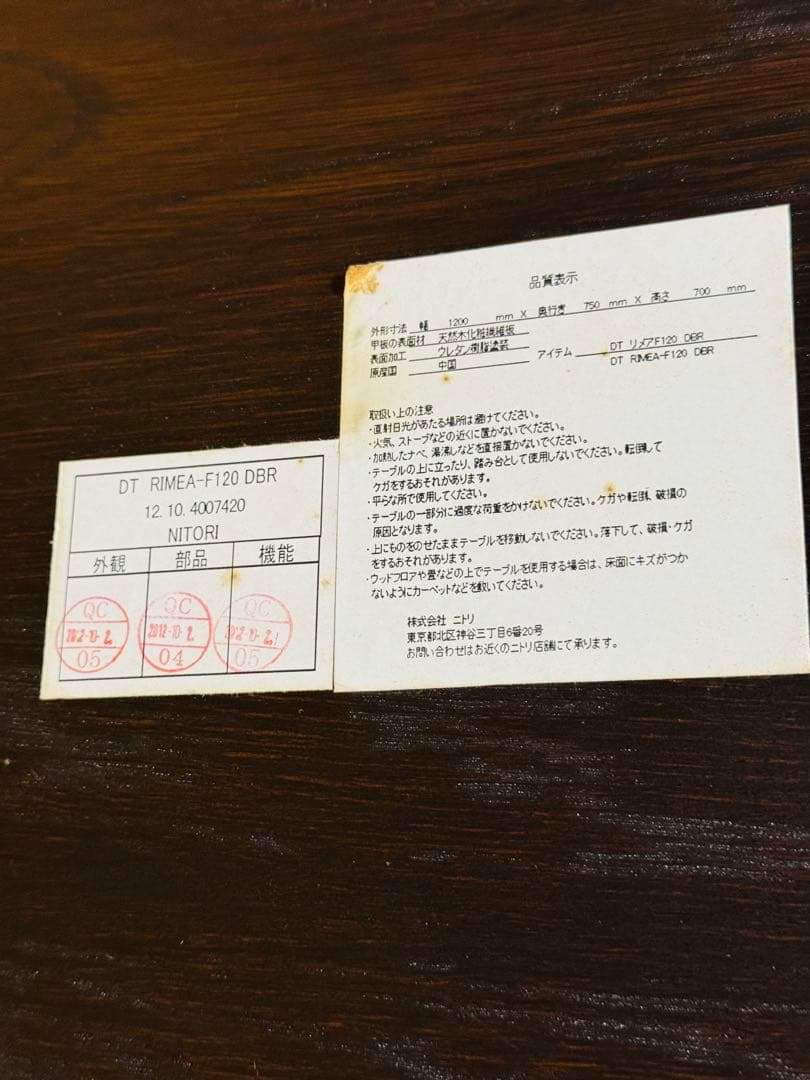 DT RIMEA-F120 DBR
12.10.4007420
NITORI
外観 部品 機能
QC QC QC
2012-10-2. 2012-10-2. 2012-10-2.
05 04 05
品質表示
外形寸法 幅 1200 mm X 奥行き 750 mm X 高さ 700 mm
甲板の表面材 天然木化粧繊維板
表面加工 ウレタン樹脂塗装 アイテム DT リメアF120 DBR
原産国 中国 DT RIMEA-F120 DBR
取扱い上の注意
・直射日光があたる場所は避けてください。
・火気、ストーブなどの近くに置かないでください。
・加熱したナベ、湯沸しなどを直接置かないでください。
・テーブルの上に立ったり、踏み台として使用しないでください。転倒して
ケガをするおそれがあります。
・平らな所で使用してください。
・テーブルの一部分に過度な荷重をかけないでください。ケガや転倒、破損の
原因となります。
・上にものをのせたままテーブルを移動しないでください。落下して、破損・ケガ
をするおそれがあります。
・ウッドフロアや畳などの上でテーブルを使用する場合は、床面にキズがつか
ないようにカーペットなどを敷いてください。
株式会社 ニトリ
東京都北区神谷三丁目6番20号
お問い合わせはお近くのニトリ店舗にて承ります。